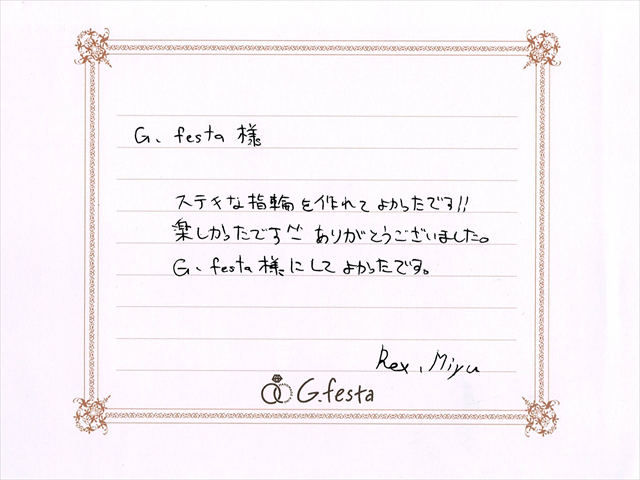 G、festa 様
ステキな指輪を作れてよかったです!!
楽しかったです^^ ありがとうございました。
G、festa 様にしてよかったです。
Rex、Miyu
G.festa